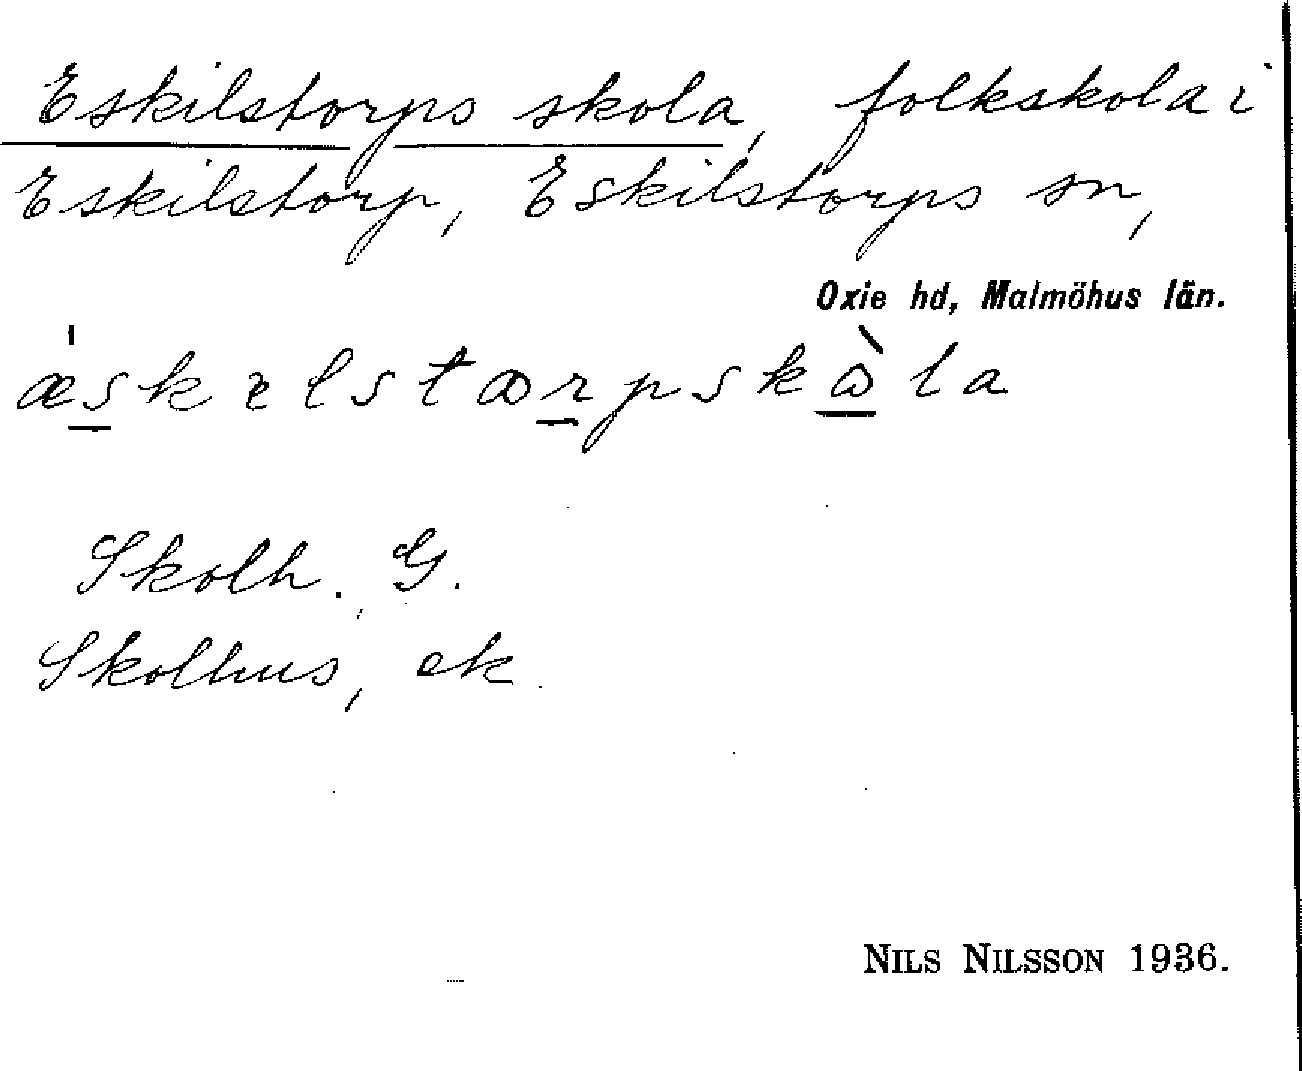 Eskilstorps skola, folkskola i
Eskilstorp, Eskilstorps sn,
Oxie hd, Malmöhus län.
Skolh. G.
Skolhus, ek.
NILS NILSSON 1936.